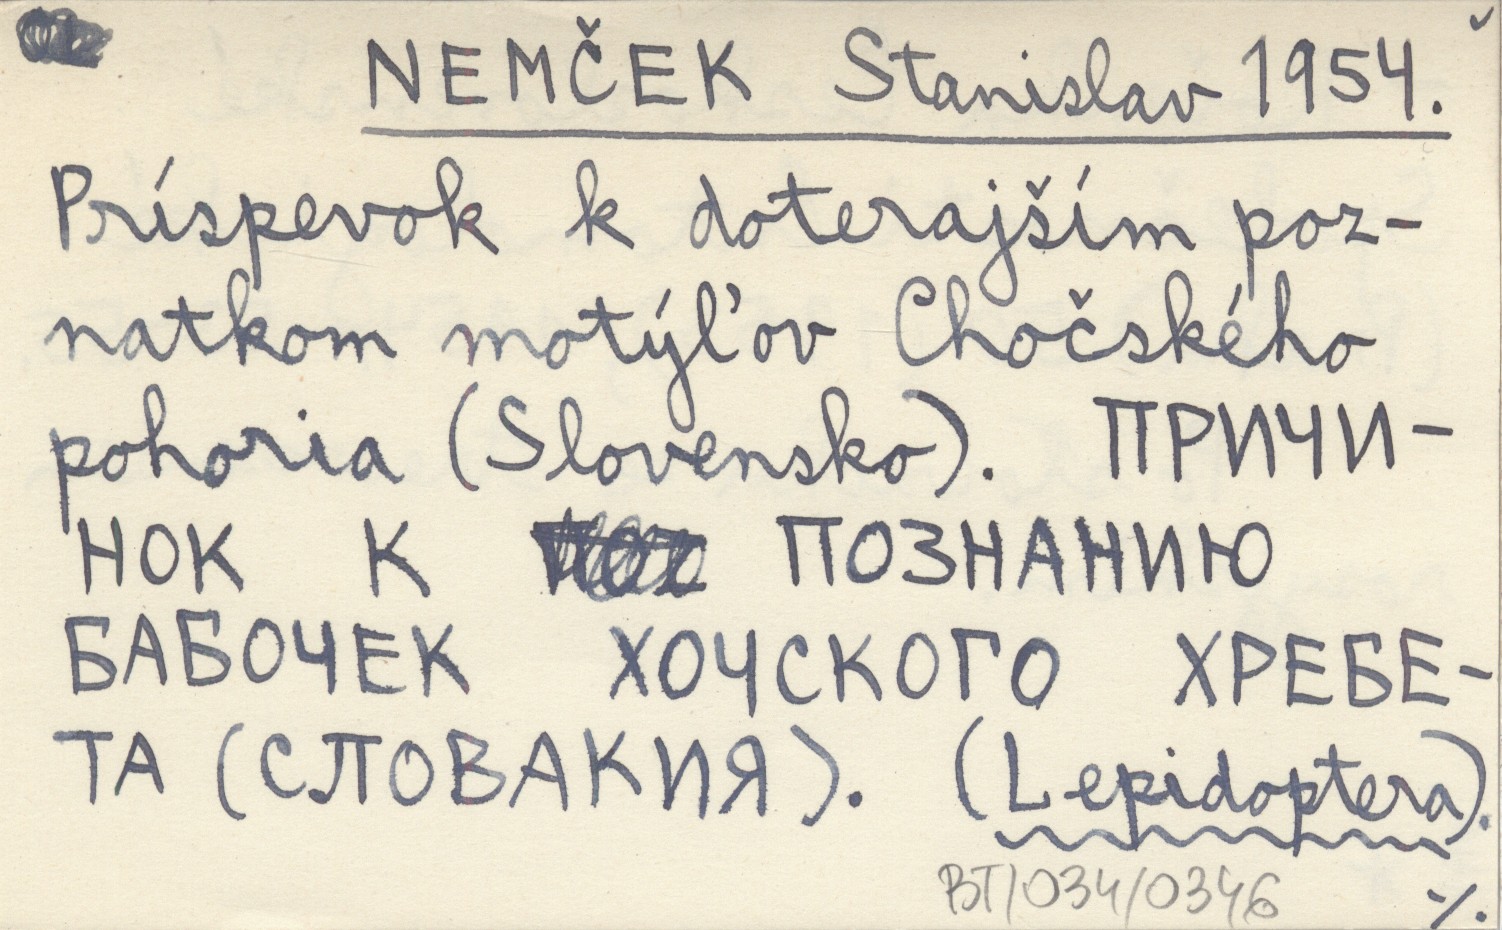 NEMČEK Stanislav 1954.
Príspevok k doterajším poz-
natkom motýľov Chočského
pohoria (Slovensko). ПРИЧИ-
НОК К ПОЗНАНИЮ
БАБОЧЕК ХОЧСКОГО ХРЕБЕ-
ТА (СЛОВАКИЯ). (Lepidoptera).
BT/034/0346 ./.